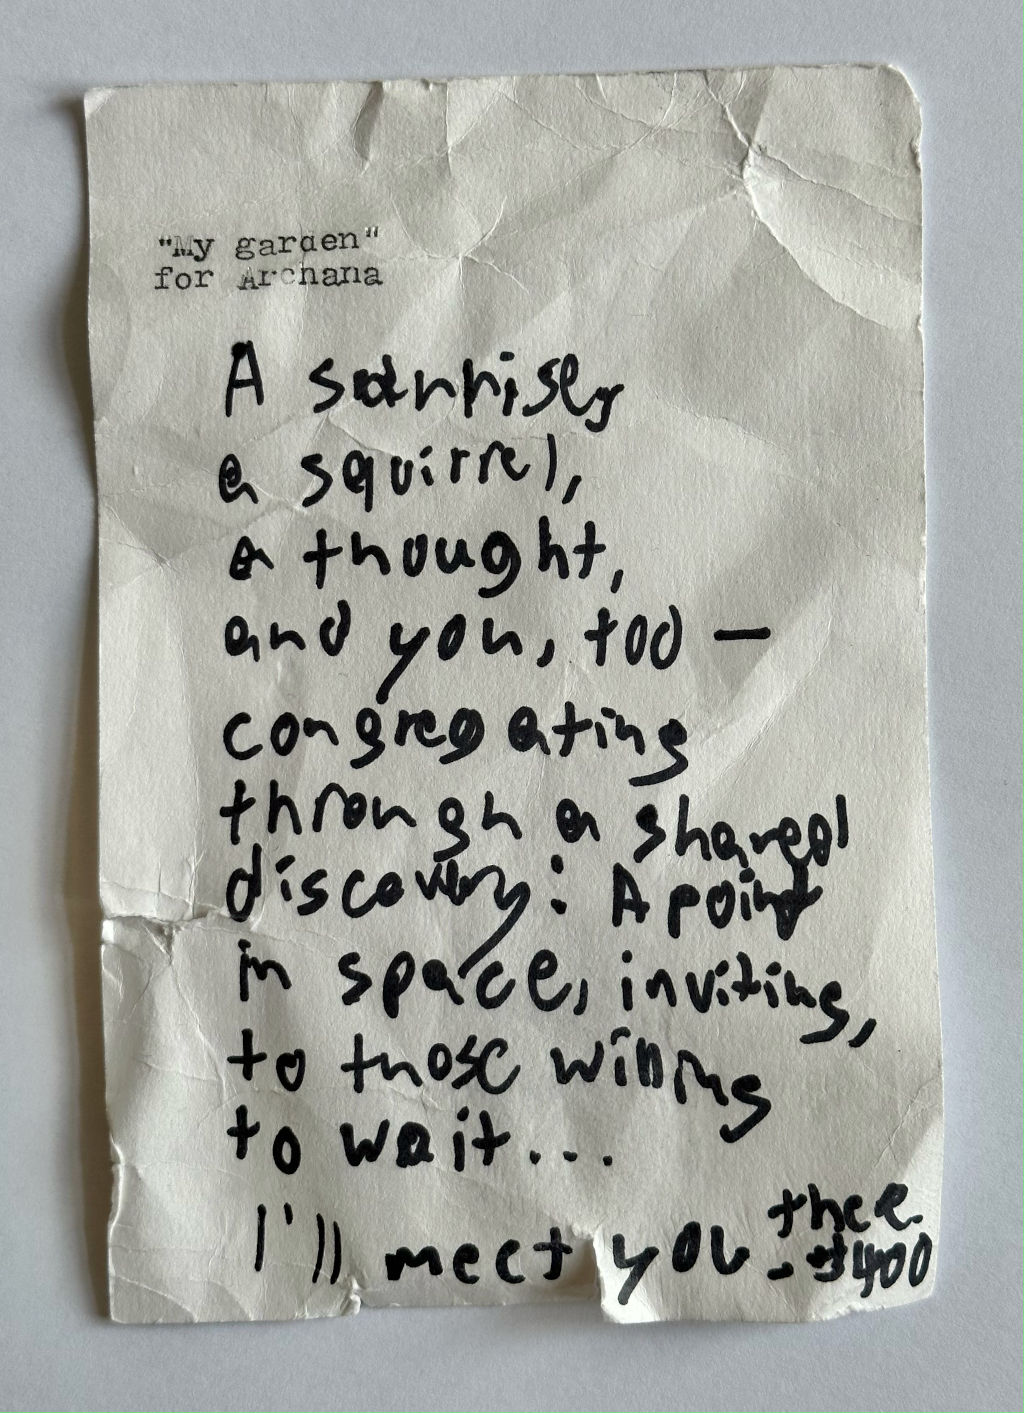 "My garden"
for Archana
A sunrise,
a squirrel,
a thought,
and you, too —
congregating
through a shared
discovery: A point
in space, inviting,
to those willing
to wait...
I'll meet you there